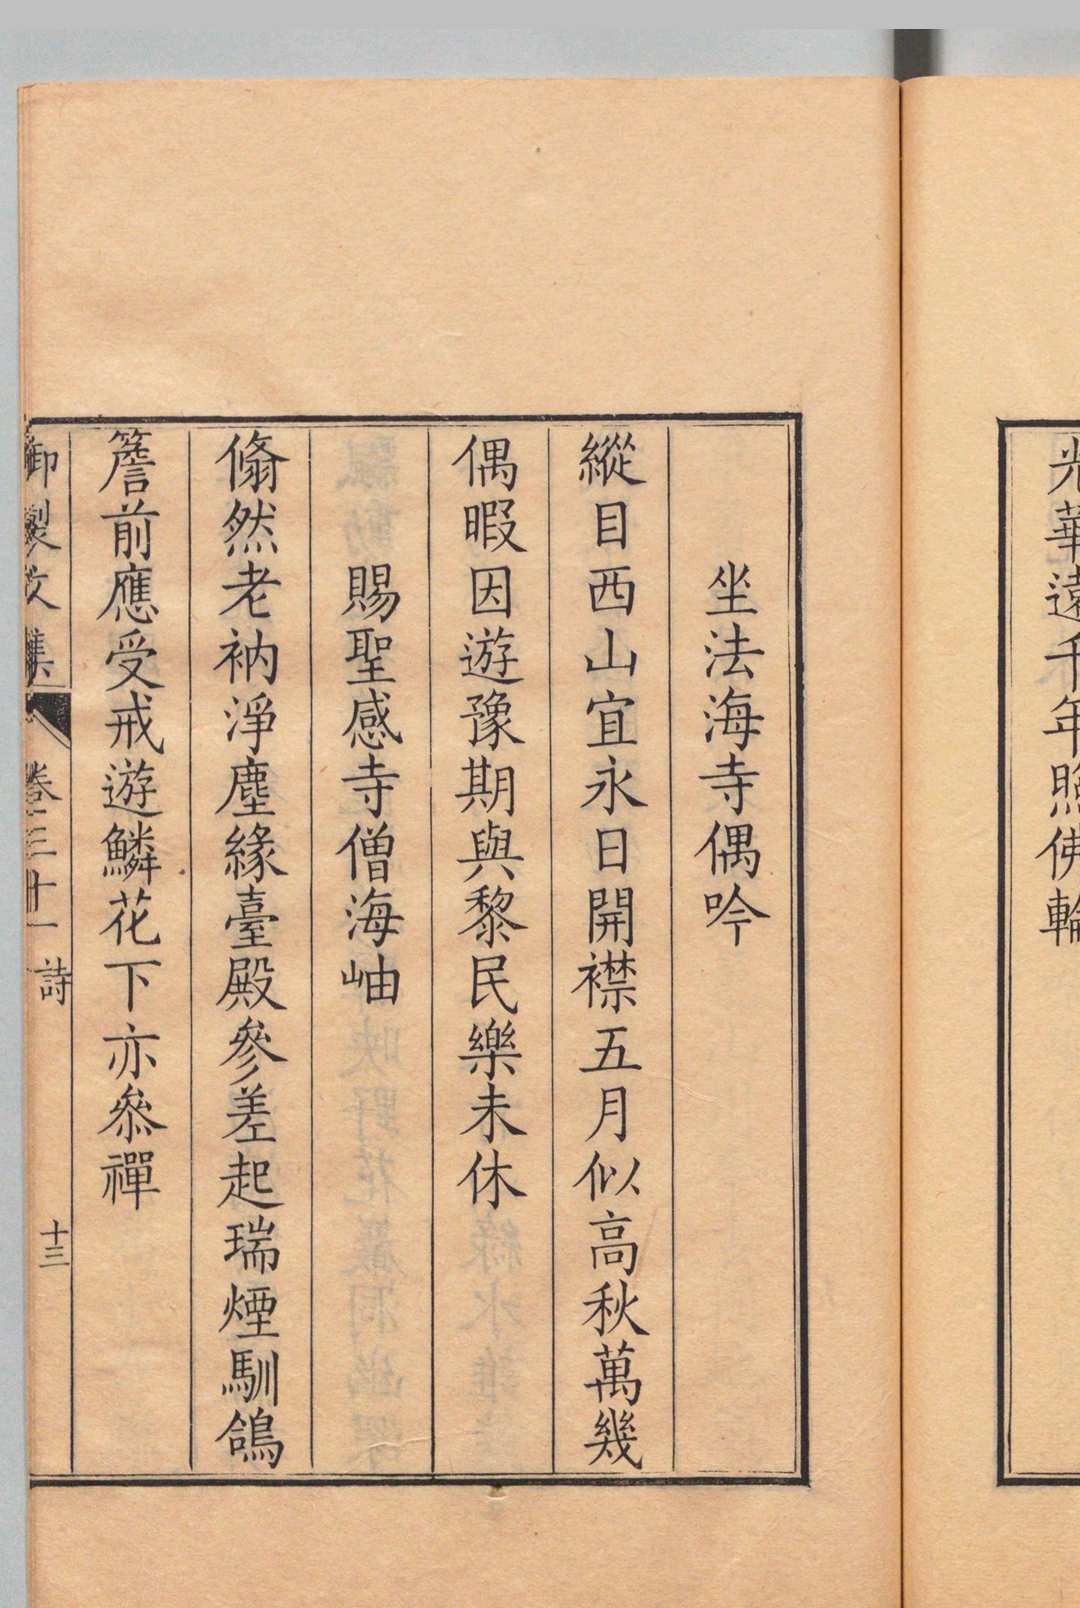 光華遠千年照佛輪
坐法海寺偶吟
縱目西山宜永日開襟五月似高秋萬幾
偶暇因遊豫期與黎民樂未休
賜聖感寺僧海岫
翛然老衲淨塵緣臺殿參差起瑞煙馴鴿
簷前應受戒遊鱗花下亦叅禪
御製文集 卷三十一 詩 十三